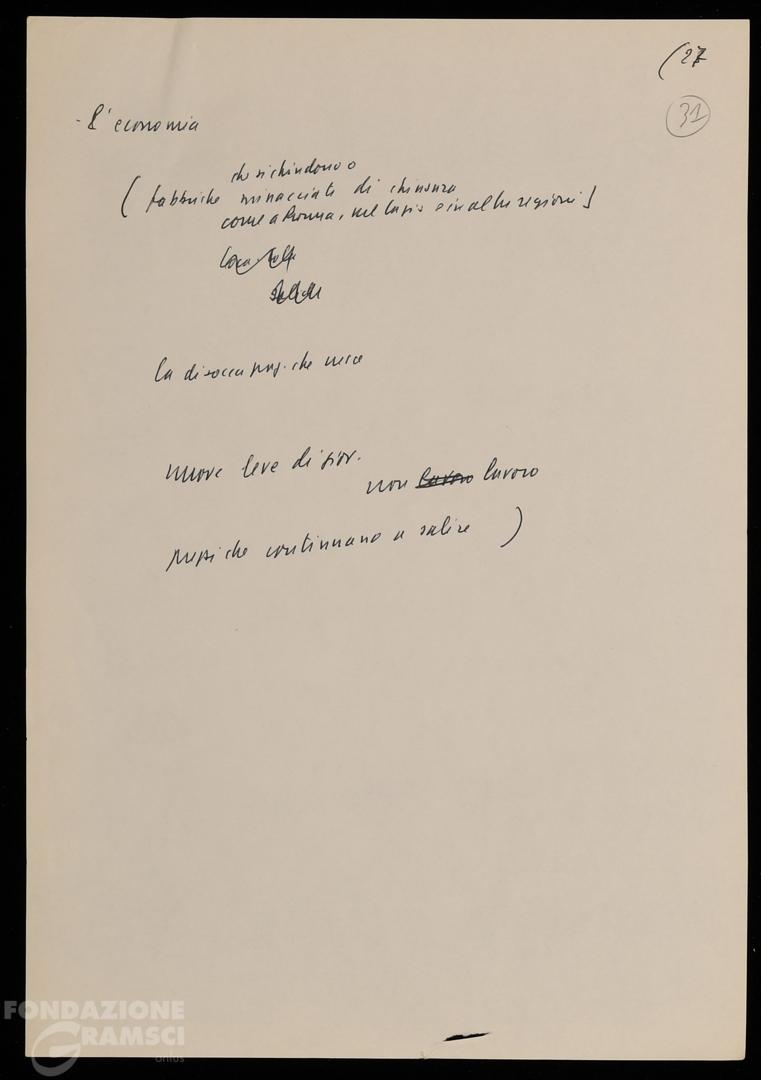 (27
31
- L'economia
che si chiudono o
( fabbriche minacciate di chiusura
come a Roma, nel Lazio e in altre regioni]
la disoccupaz. che cresce
nuove leve di giov.
non lavoro lavoro
prezzi che continuano a salire )
FONDAZIONE
GRAMSCI
onlus